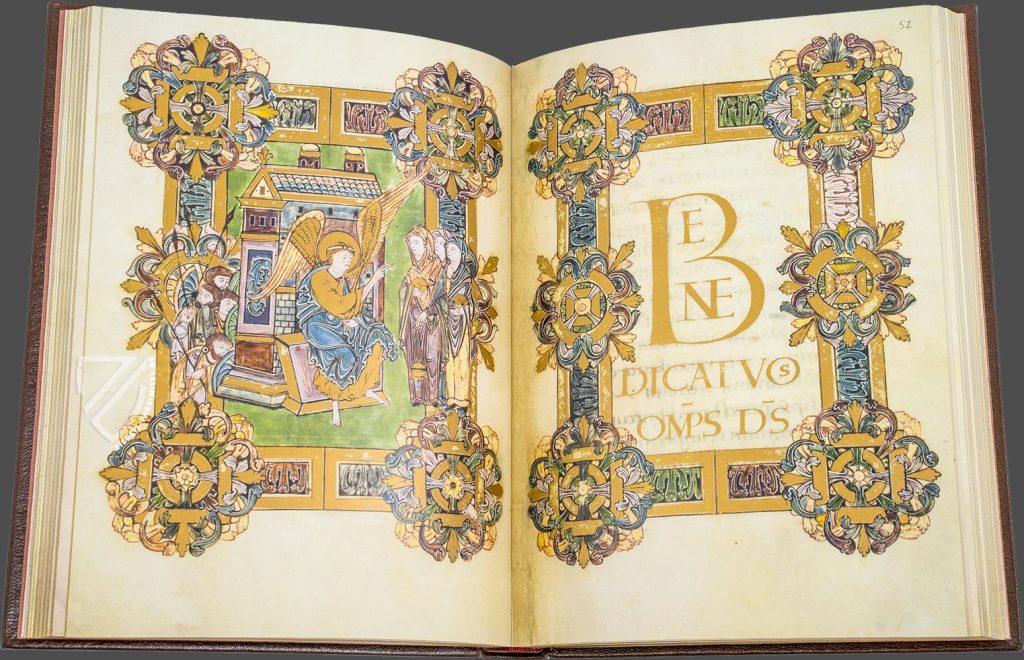 52
BE
NE
DICAT VOS
OM̄PS D̄S